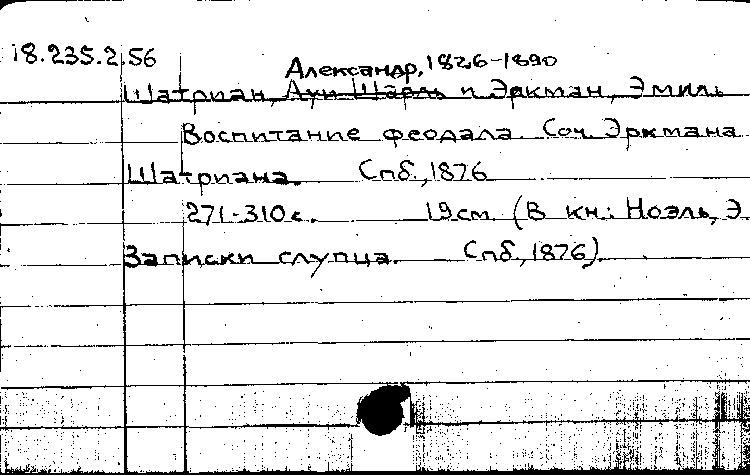 18.235.2.56
Александр, 1826-1890
Шатриан, Луи Шарль и Эркман, Эмиль
Воспитание феодала. Соч. Эркмана
Шатриана. Спб., 1876
271-310 с. 19 см. (В кн.: Ноэль, Э.
Записки слупца. Спб., 1876).